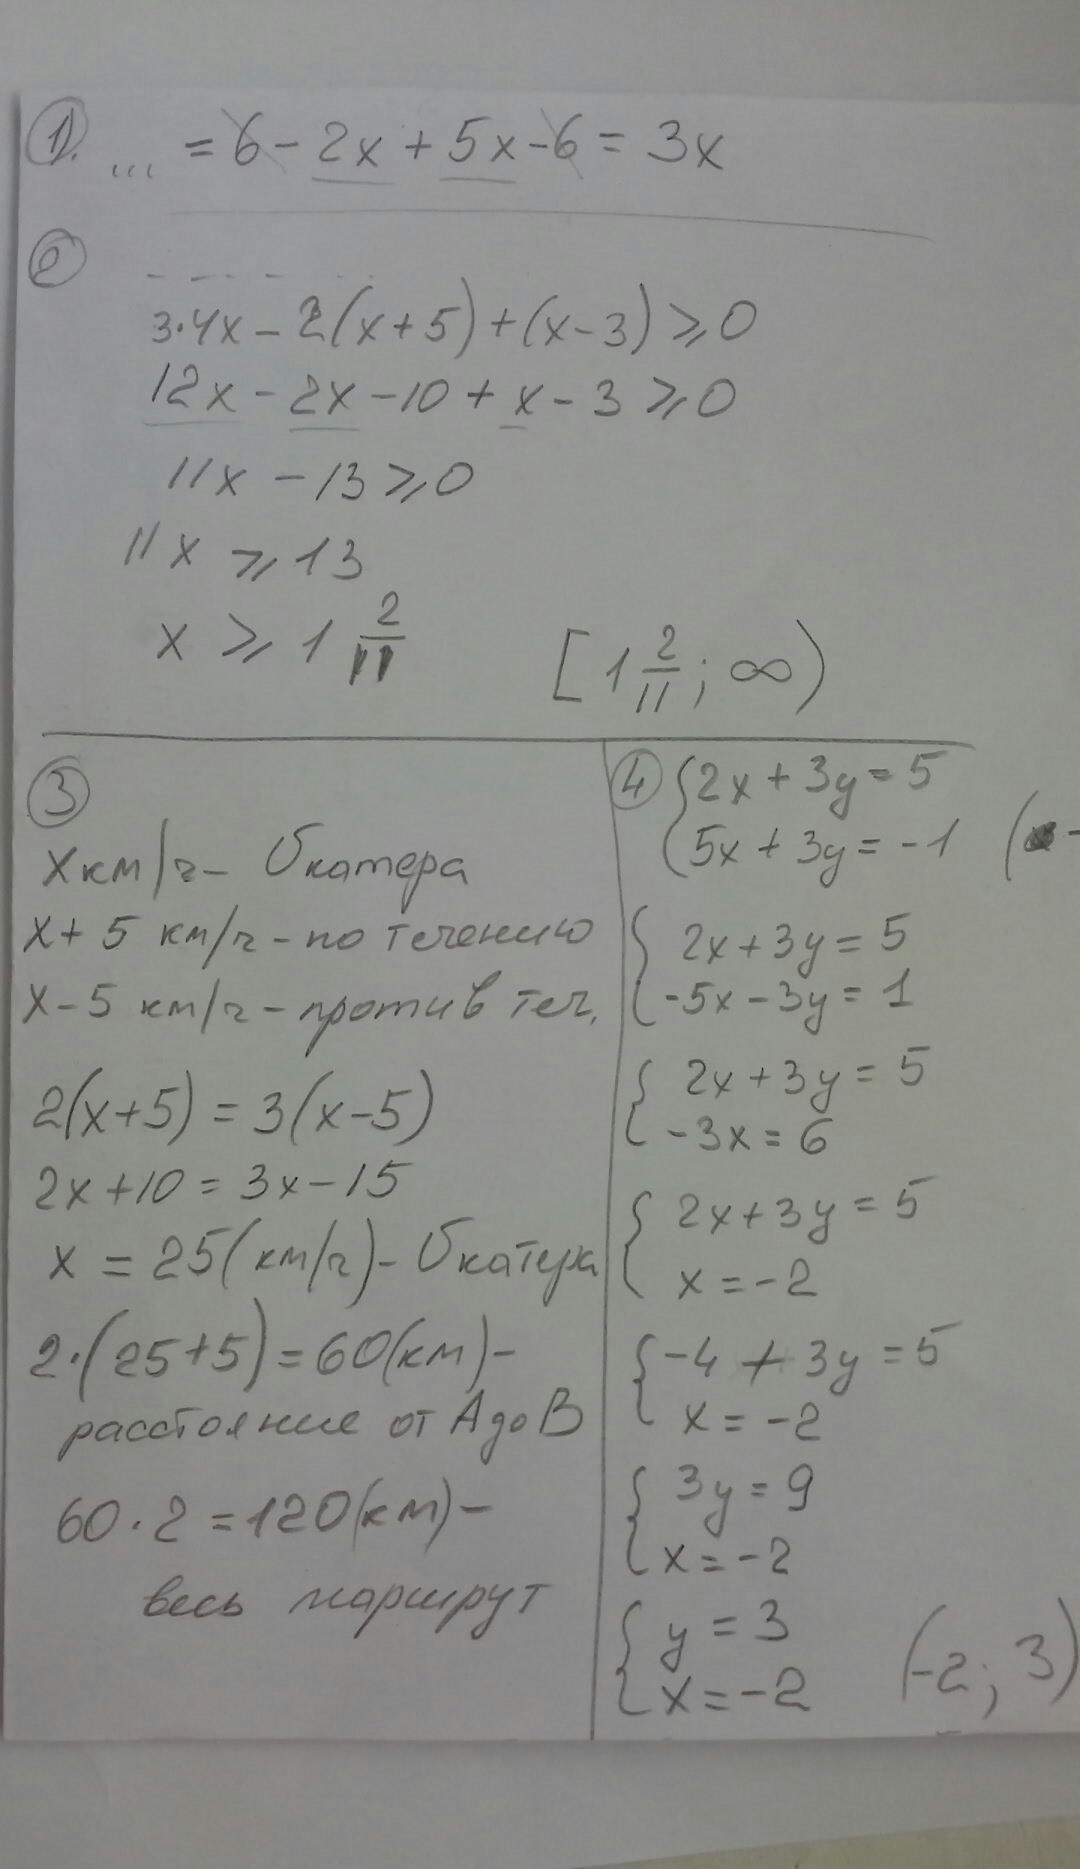 1). ... = 6 - 2x + 5x - 6 = 3x
2
3·4x - 2(x+5) + (x-3) ⩾ 0
12x - 2x - 10 + x - 3 ⩾ 0
11x - 13 ⩾ 0
11x ⩾ 13
x ⩾ 1 2/11 [1 2/11; ∞)
3
x км/ч - υ катера
x + 5 км/ч - по течению
x - 5 км/ч - против теч.
2(x+5) = 3(x-5)
2x + 10 = 3x - 15
x = 25 (км/ч) - υ катера
2·(25+5) = 60 (км) -
расстояние от А до В
60·2 = 120 (км) -
весь маршрут
4 { 2x + 3y = 5
5x + 3y = -1
{ 2x + 3y = 5
-5x - 3y = 1
{ 2x + 3y = 5
-3x = 6
{ 2x + 3y = 5
x = -2
{ -4 + 3y = 5
x = -2
{ 3y = 9
x = -2
{ y = 3
x = -2 (-2; 3)